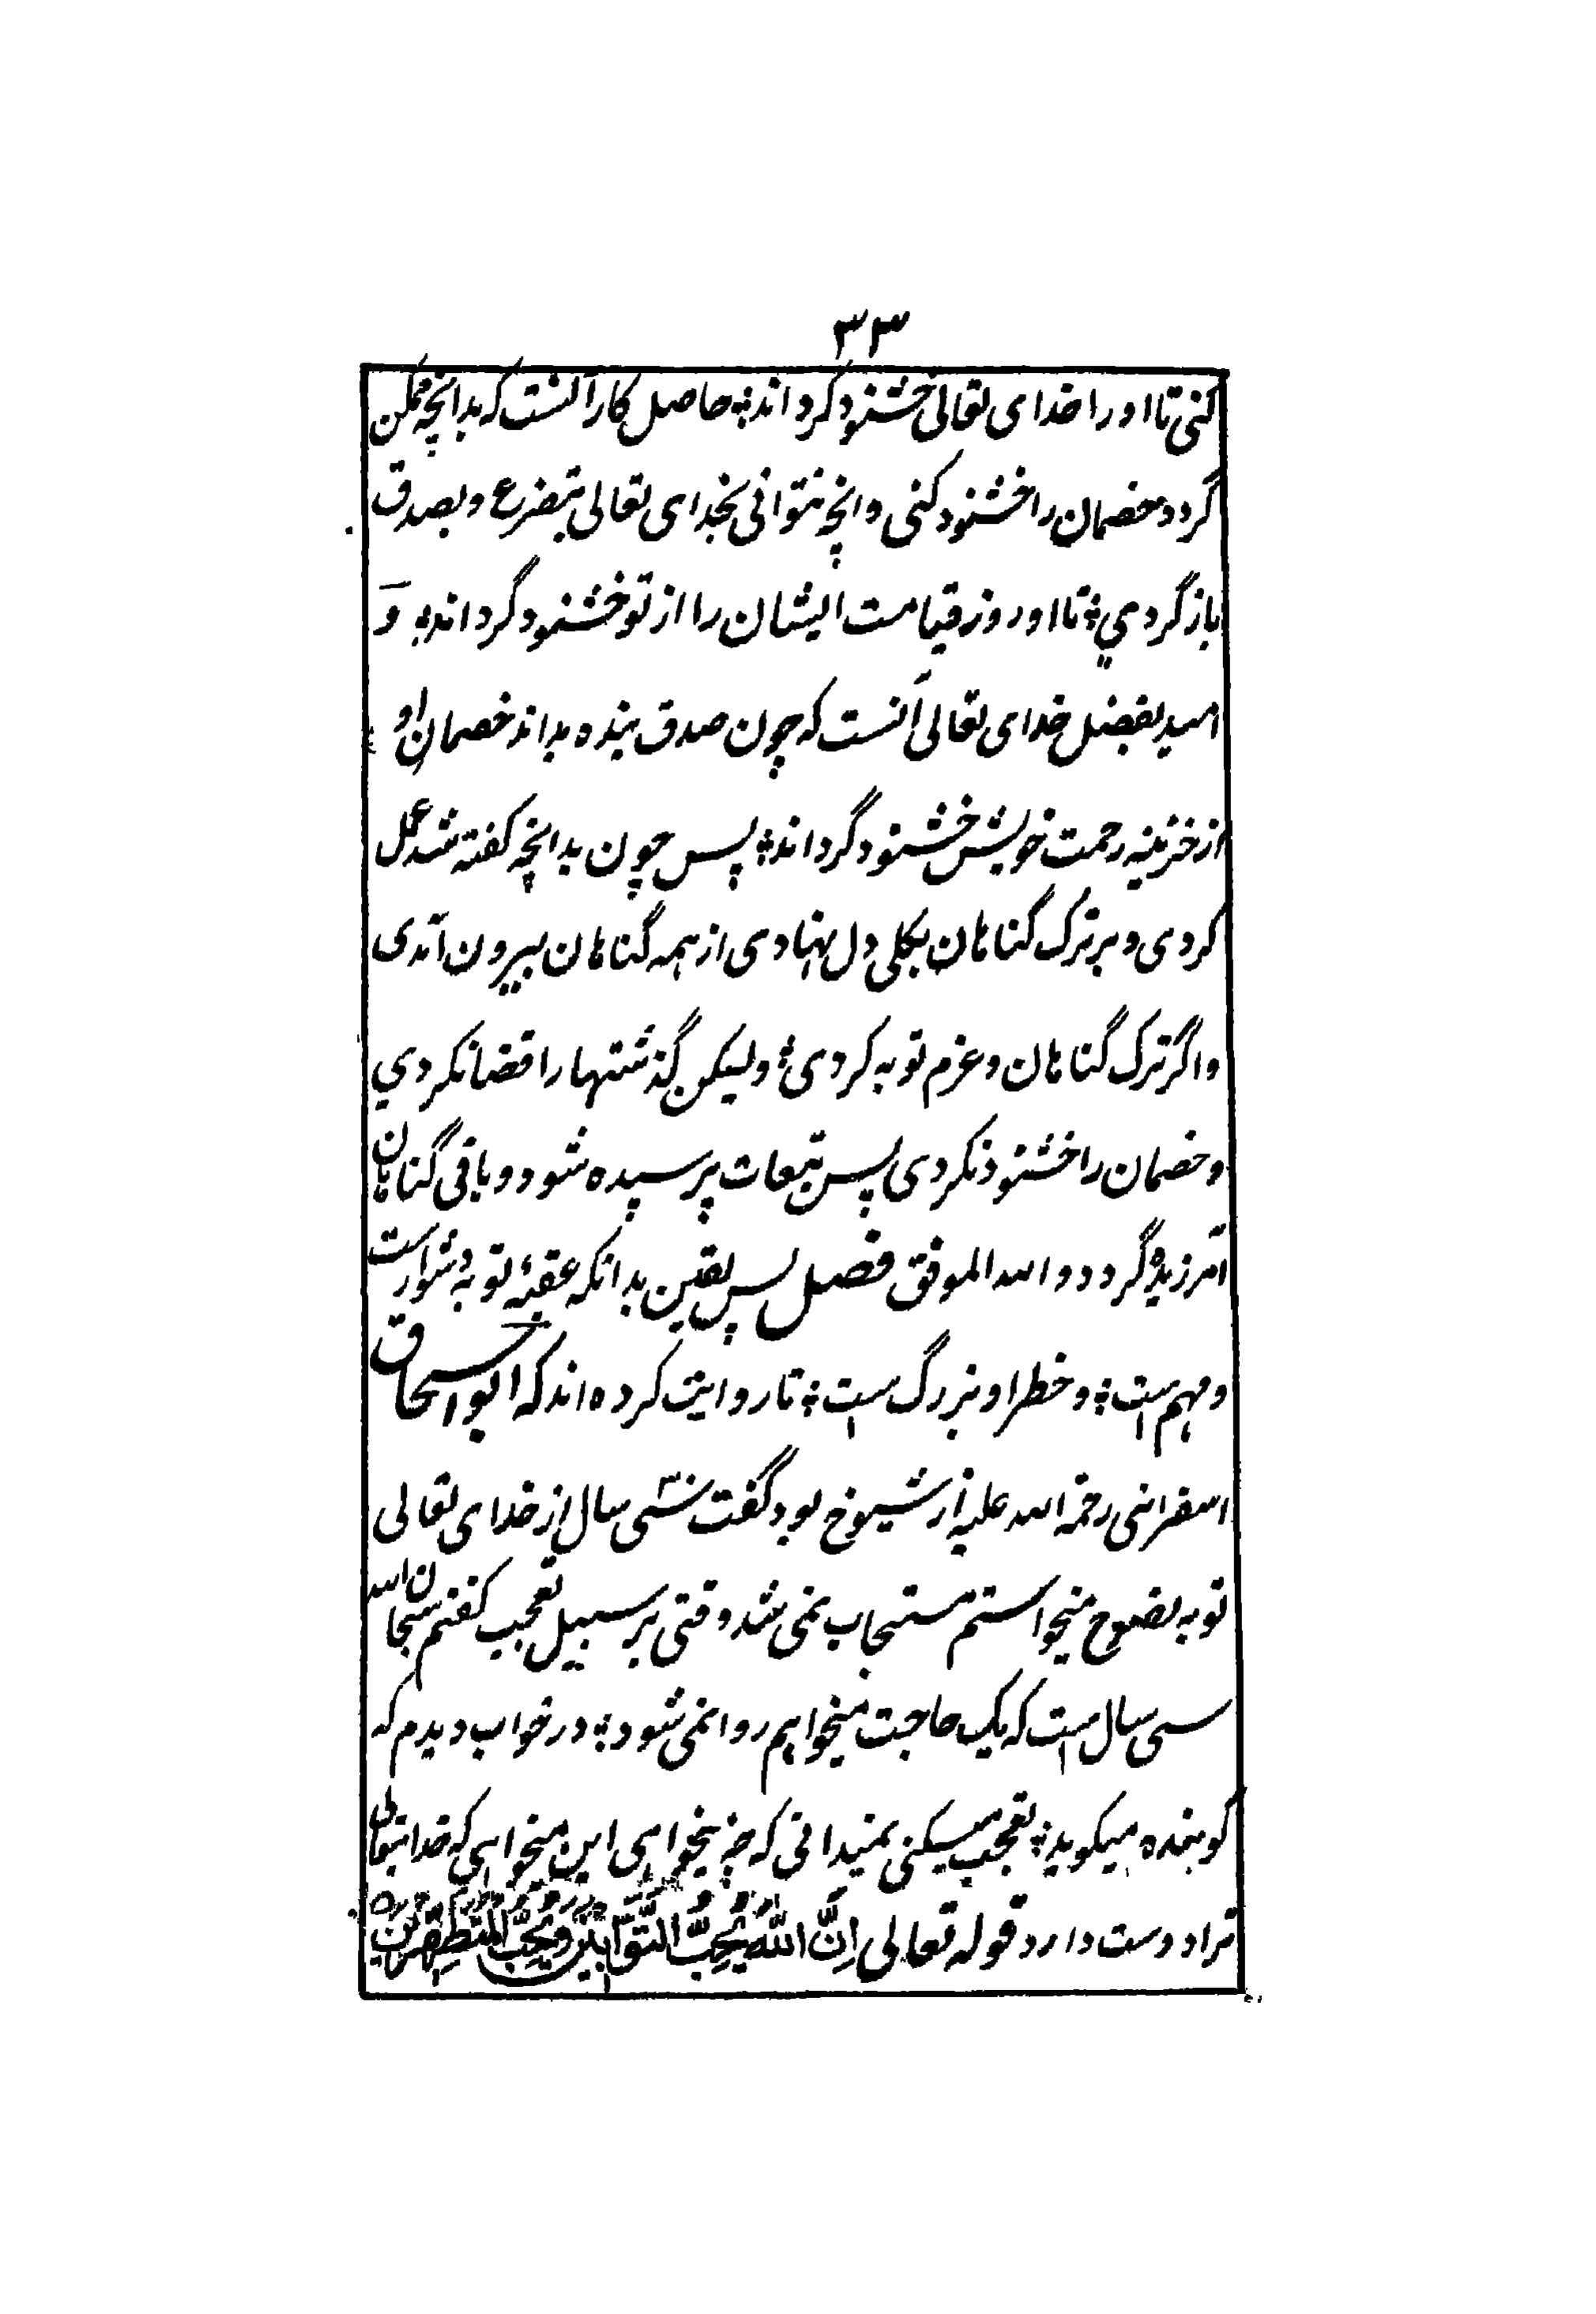 ٣٣
کنی تا او را خدای تعالی خشنود گرداند؛ حاصل کار آنست که بدانچه ممکن
گردد خصمان را خشنود کنی و انچه نتوانی بخدای تعالی بتضرع و بصدق
باز گردی؛ تا او روز قیامت ایشان را از تو خشنود گرداند؛ و
امید بفضل خدای تعالی آنست که چون صدق بنده بداند خصمان او
از خزینه رحمت خویش خشنود گرداند؛ پس چون بدانچه گفته شد عمل
کردی و بر ترک گناهان بکلی دل نهادی از همه گناهان بیرون آمدی
و اگر ترک گناهان و عزم توبه کردی؛ ولیکن گذشتها را قضا نکردی
و خصمان را خشنود نکردی پس تبعات پرسیده شود و باقی گناهان
آمرزیده گردد و الله الموفق فصل پس یقین بدانکه عقبهٔ توبه دشوار است
و مهم است؛ و خطر او بزرگ است؛ تا روایت کرده اند که ابو اسحاق
اسفراینی رحمة الله علیه از شیوخ بود گفت سی سال از خدای تعالی
توبه نصوح میخواستم مستجاب نمی شد وقتی بر سبیل تعجب گفتم سبحان الله
سی سال است که یک حاجت میخواهم روا نمی شود؛ در خواب دیدم که
گوینده میگوید؛ تعجب میکنی نمیدانی که چه میخواهی این میخواهی که خدایتعالی
ترا دوست دارد قوله تعالی اِنَّ اللّٰهَ یُحِبُّ التَّوَّابِیْنَ وَیُحِبُّ الْمُتَطَهِّرِیْنَ